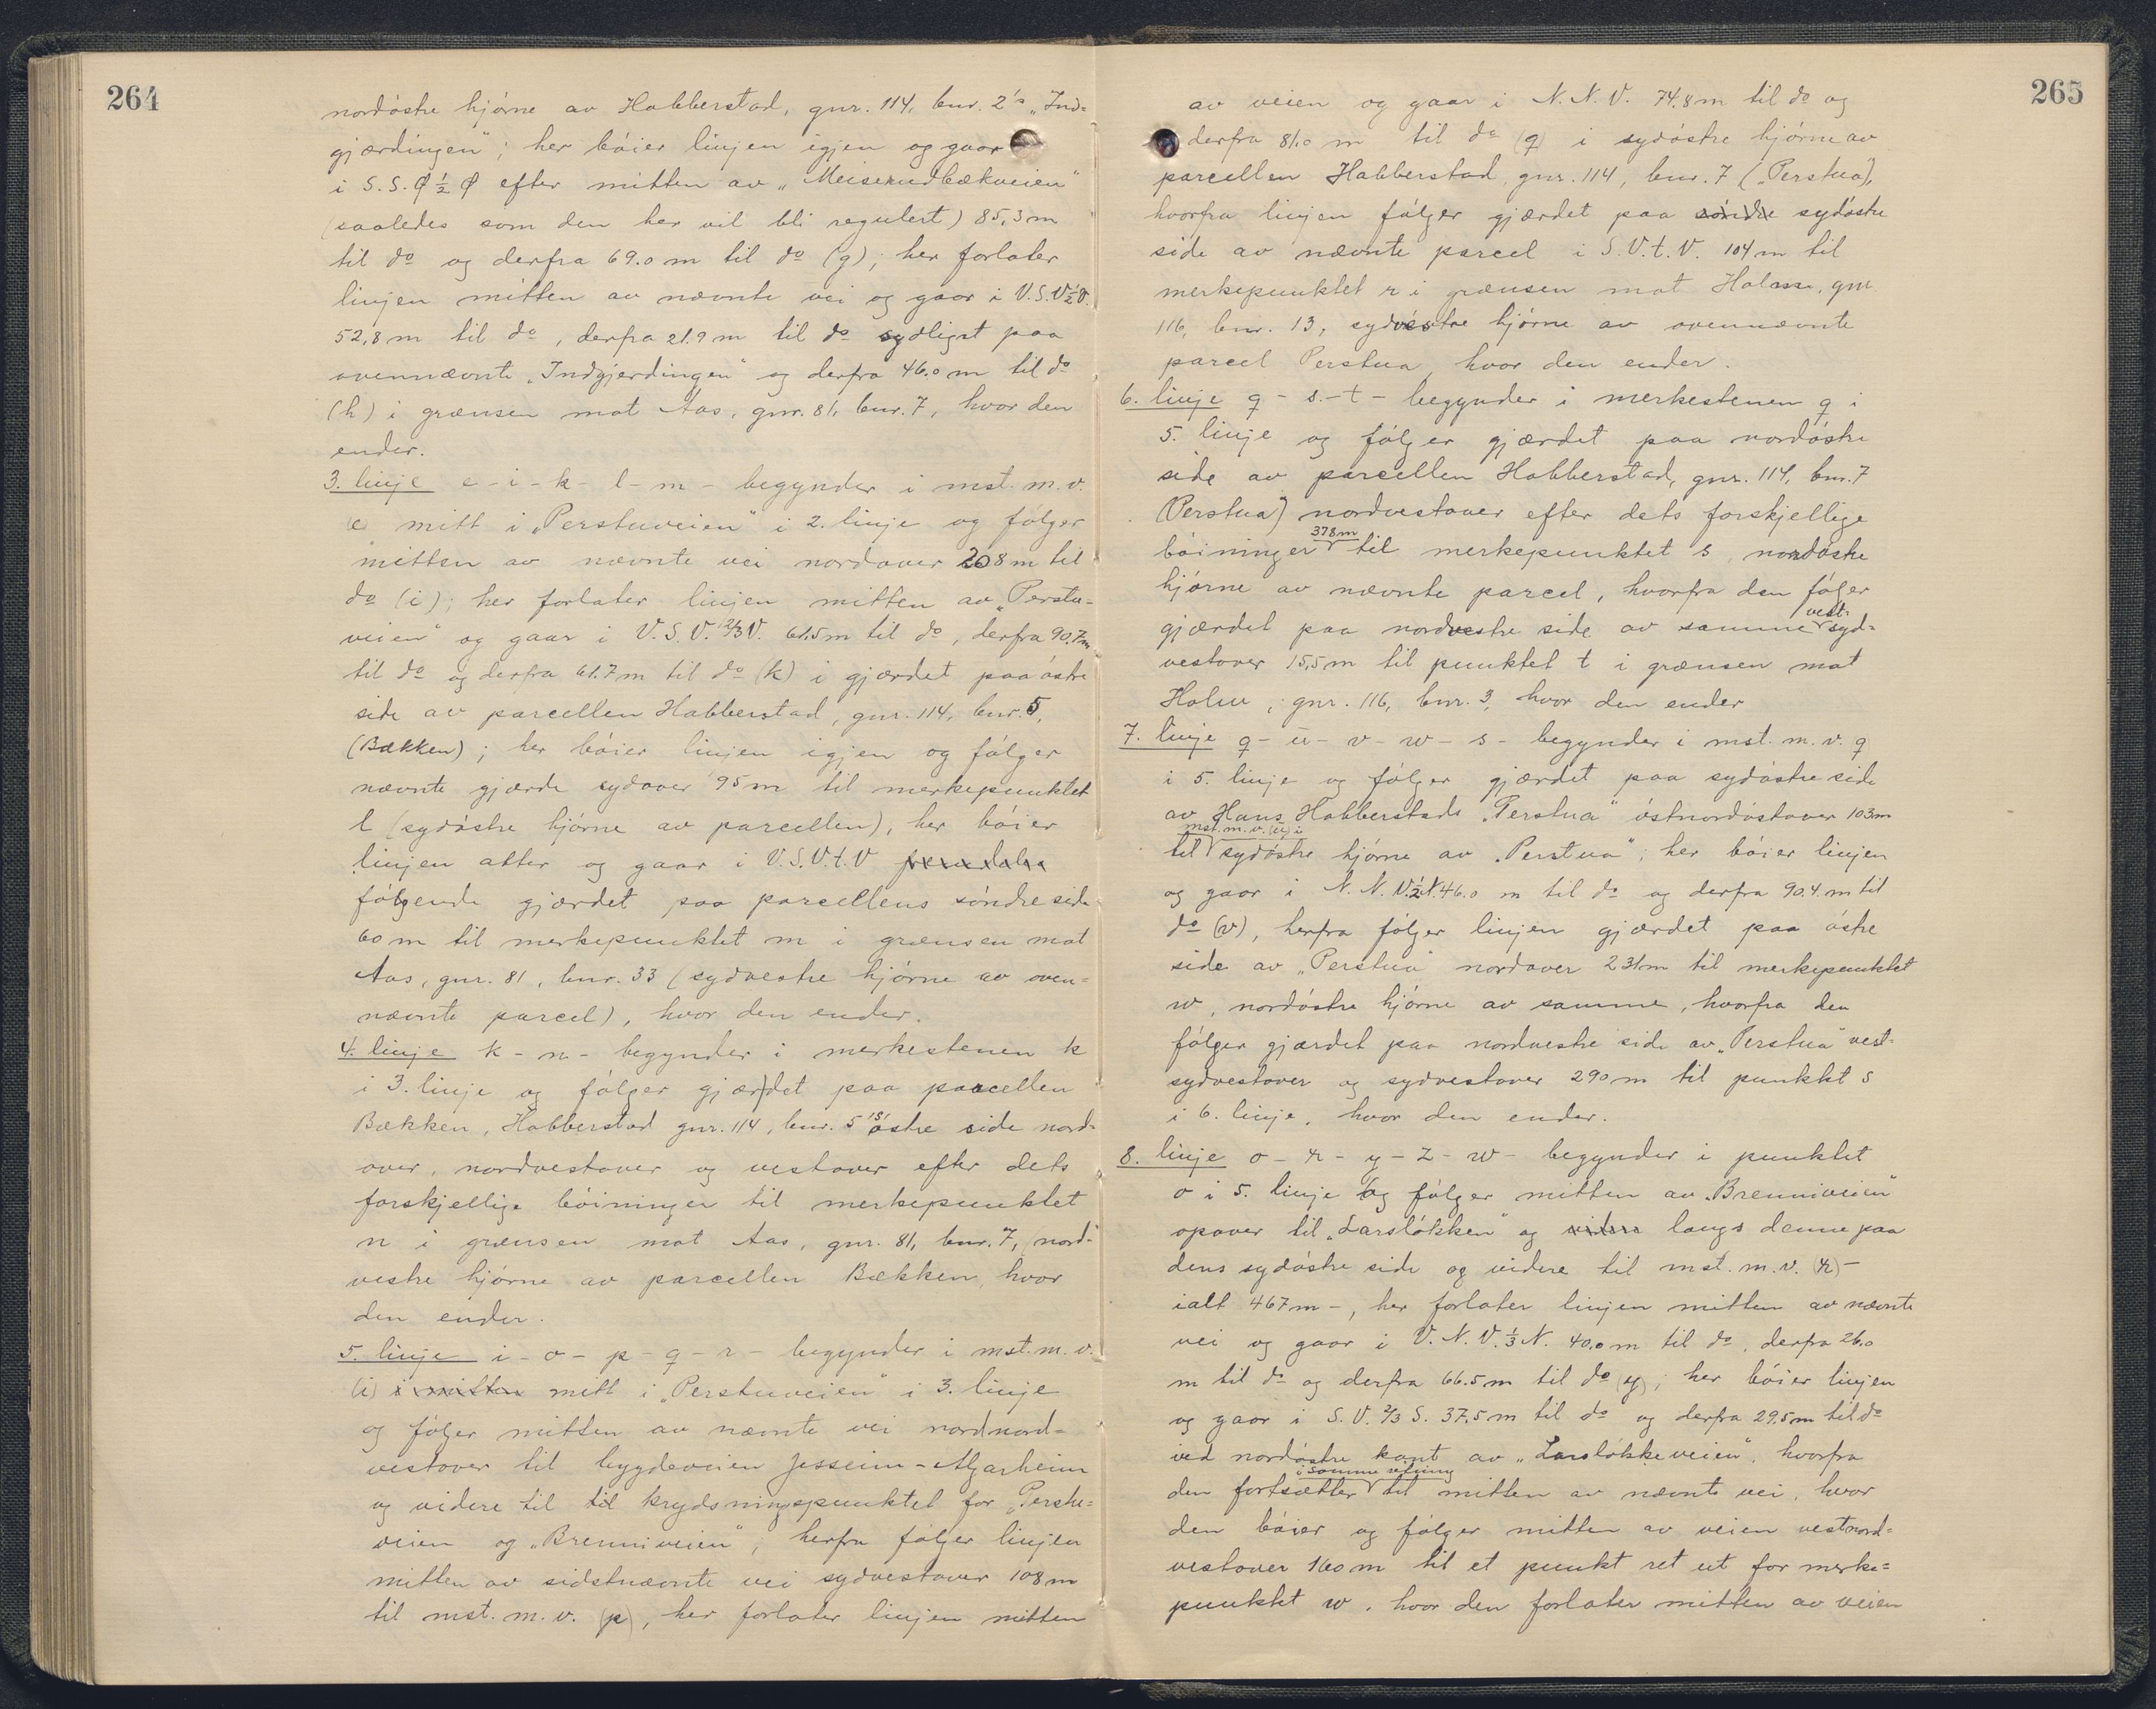 264
nordöstre hjörne av Habberstad, gnr. 114, bnr. 2's „Ind=
gjærdingen"; her böier linjen igjen og gaar
i S. S. Ø ½ Ø efter mitten av „Meiserudbækveien"
(saaledes som den her vil bli regulert) 85,3 m
til do og derfra 69.0 m til do (g); her forlater
linjen mitten av nævnte vei og gaar i V. S. V ½ V.
52,8 m til do, derfra 21.9 m til do sydligst paa
ovennævnte „Indgjerdingen" og derfra 46.0 m til do
(h) i grænsen mot Aas, gnr. 81, bnr. 7, hvor den
ender.
3. linje e - i - k - l - m - begynder i mst. m. v.
(e) mitt i „Perstuveien" i 2. linje og fölger
mitten av nævnte vei nordover 208 m til
do (i); her forlater linjen mitten av „Perstu=
veien" og gaar i V. S. V. 2/3 V. 61.5 m til do, derfra 90.7 m
til do og derfra 61.7 m til do (k) i gjærdet paa östre
side av parcellen Habberstad, gnr. 114, bnr. 5,
(Bækken); her böier linjen igjen og fölger
nævnte gjærde sydover 95 m til merkepunktet
l (sydöstre hjörne av parcellen), her böier
linjen atter og gaar i V. S. V. t. V
fölgende gjærdet paa parcellens söndre side
60 m til merkepunktet m i grænsen mot
Aas, gnr. 81, bnr. 33 (sydvestre hjörne av oven=
nævnte parcel), hvor den ender.
4. linje k - n - begynder i merkestenen k
i 3. linje og fölger gjærdet paa parcellen
Bækken, Habberstad gnr. 114, bnr. 5's östre side nord=
over, nordvestover og vestover efter dets
forskjellige böininger til merkepunktet
n i grænsen mot Aas, gnr. 81, bnr. 7, (nord=
vestre hjörne av parcellen Bækken, hvor
den ender.
5. linje i - o - p - q - r - begynder i mst. m. v.
(i) i mitten mitt i „Perstuveien" i 3. linje
og fölger mitten av nævnte vei nordnord=
vestover til bygdeveien Jesseim - Algarheim
og videre til til krydsningspunktet for „Perstu=
veien og „Brenniveien", herfra fölger linjen
mitten av sidstnævnte vei sydvestover 108 m
til mst. m. v. (p), her forlater linjen mitten
265
av veien og gaar i N. N. V. 74.8 m til do og
derfra 81.0 m til do (q) i sydöstre hjörne av
parcellen Habberstad, gnr. 114, bnr. 7 („Perstua),
hvorfra linjen fölger gjærdet paa söndre sydöstre
side av nævnte parcel i S. V. t. V. 104 m til
merkepunktet r i grænsen mot Holam, gnr
116, bnr. 13, sydvestre hjörne av ovennævnte
parcel Perstua, hvor den ender.
6. linje q - s. - t - begynder i merkestenen q i
5. linje og fölger gjærdet paa nordöstre
side av parcellen Habberstad, gnr. 114, bnr. 7
(Perstua) nordvestover efter dets forskjellige
378 m
böininger til merkepunktet s, nordöstre
hjörne av nævnte parcel, hvorfra den fölger
vest-
gjærdet paa nordvestre side av samme syd=
vestover 15,5 m til punktet t i grænsen mot
Holm, gnr. 116, bnr. 3, hvor den ender
7. linje q - ü - v - w - s - begynder i mst. m. v. q
i 5. linje og fölger gjærdet paa sydöstre side
av Hans Habberstads „Perstua" östnordöstover 103 m
mst. m. v. (ü) i
til sydöstre hjörne av „Perstua"; her böier linjen
og gaar i N. N. V. ½ N. 46.0 m til do og derfra 90.4. m til
do (v), herfra fölger linjen gjærdet paa östre
side av „Perstua" nordover 231 m til merkepunktet
w, nordöstre hjörne av samme, hvorfra den
fölger gjærdet paa nordvestre side av „Perstua" vest-
sydvestover og sydvestover 290 m til punktet s
i 6. linje, hvor den ender.
8. linje o - x - y - z - w - begynder i punktet
o i 5. linje og fölger mitten av „Brenniveien"
opover til „Larslökken" og videre langs denne paa
dens sydöstre side og videre til mst. m. v. (x) -
ialt 467 m -, her forlater linjen mitten av nævnte
vei og gaar i V. N. V. ⅓ N. 40.0 m til do, derfra 26.0
m til do og derfra 66.5 m til do (y); her böier linjen
og gaar i S. V. 2/3 S. 37.5 m til do og derfra 29.5 m til do
ved nordöstre kant av „Larslökkeveien", hvorfra
i samme retning
den fortsætter til mitten av nævnte vei, hvor
den böier og fölger mitten av veien vestnord=
vestover 160 m til et punkt ret ut for merke=
punktet w, hvor den forlater mitten av veien